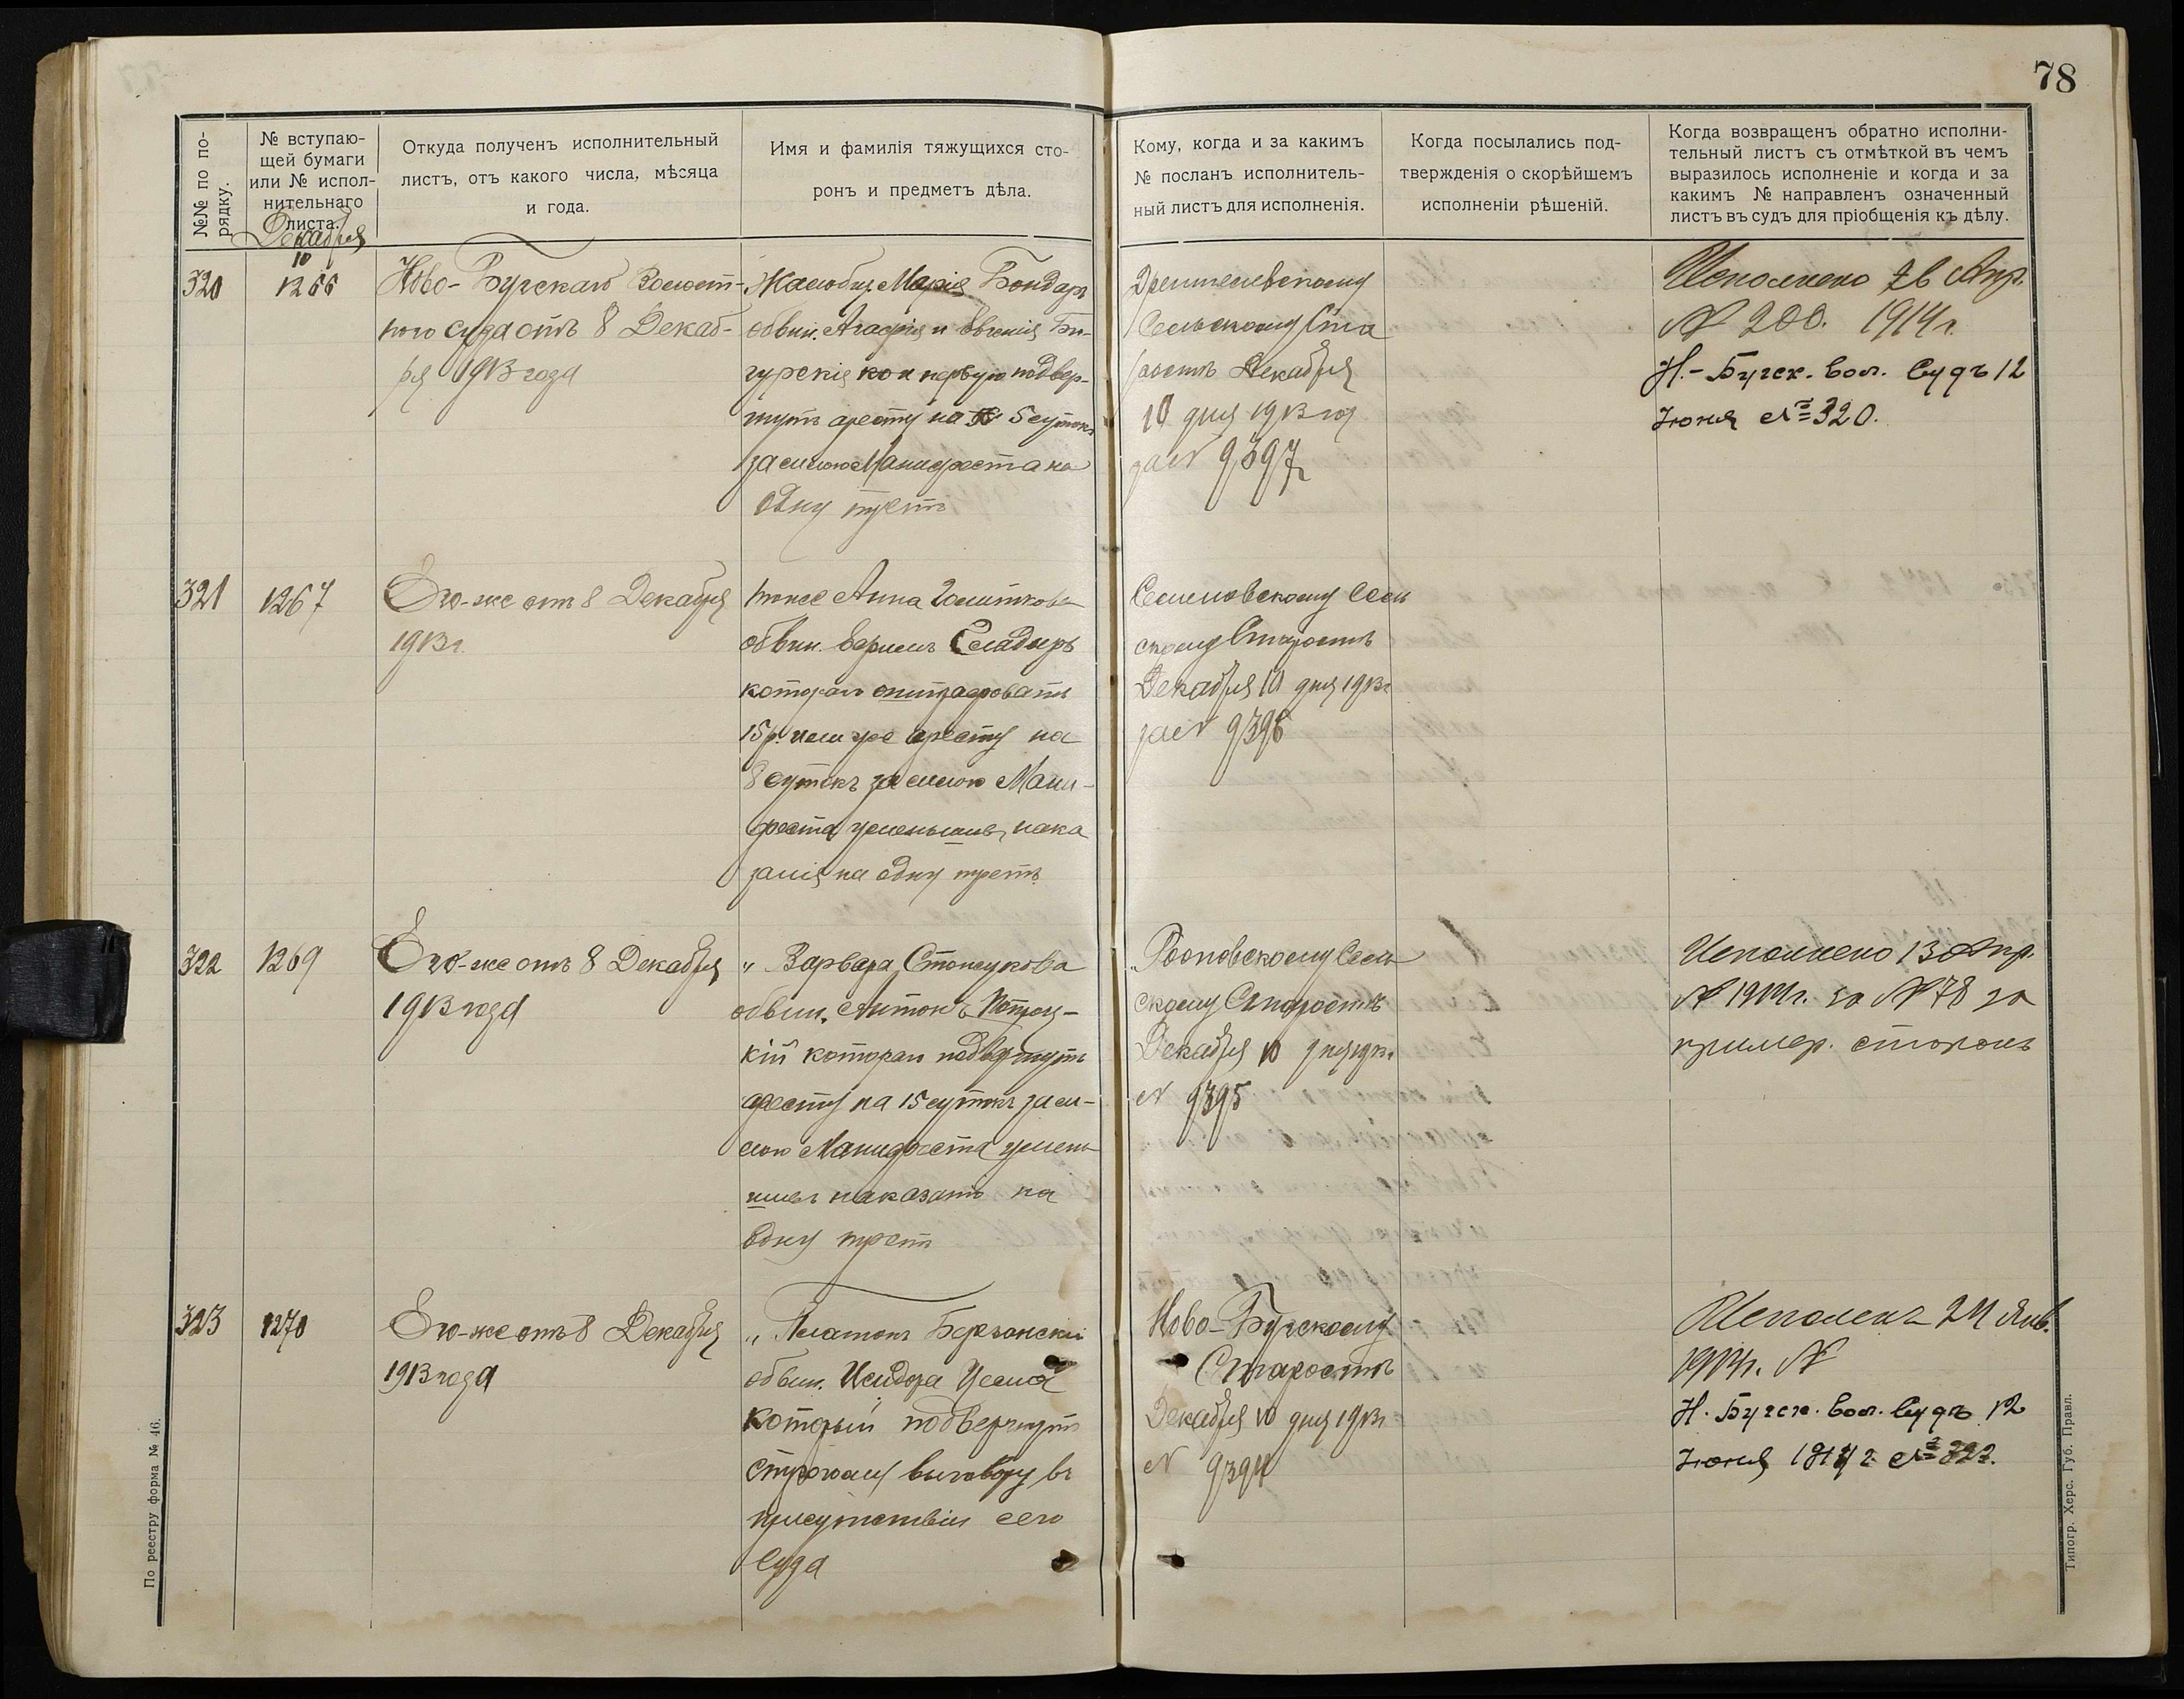 78
№№ по по-
рядку.
№ вступаю-
щей бумаги
или № испол-
нительнаго
листа.
Откуда полученъ исполнительный
листъ, отъ какого числа, мѣсяца
и года.
Имя и фамилія тяжущихся сто-
ронъ и предметъ дѣла.
Кому, когда и за какимъ
№ посланъ исполнитель-
ный листъ для исполненія.
Когда посылались под-
твержденія о скорѣйшемъ
исполненіи рѣшеній.
Когда возвращенъ обратно исполни-
тельный листъ съ отмѣткой въ чемъ
выразилось исполненіе и когда и за
какимъ № направленъ означенный
листъ въ судъ для пріобщенія къ дѣлу.
Декабря
10
320
1266
Ново-Бугскаго Волост-
ного суда отъ 8 Декаб-
ря 1913 года
Жалобщ. Марія Бондарь
обвин. Агафія и Евгенія
кои первую подвер-
гнуть аресту на 5 сутокъ
за силою Манифеста на
одну треть
Сельскому Ста
ростѣ Декабря
10 дня 1913 год
за № 9397
Исполнено Апр.
№ 200. 1914 г.
Н.-Бугск. вол. Судъ 12
Іюня № 320.
321
1267
Его-же отъ 8 Декабря
1913 г.
Анна
обвин.
котораго оштрафовать
15 р. или же аресту на
8 сутокъ за силою Мани-
феста уменьшивъ нака
занія на одну треть
Семеновскому Сель
скому Старостѣ
Декабря 10 дня 1913 г
за № 9396
322
1269
Его-же отъ 8 Декабря
1913 года
„ Варвара
обвин. Антонъ
кій котораго подвергнуть
аресту на 15 сутокъ за си-
лою Манифеста умень
шивъ наказать на
одну треть
Сель
скому Старостѣ
Декабря 10 дня 1913 г
№ 9395
Исполнено 13 Апр.
№ 1914 г. за № 78 за
примир. сторонъ
323
1270
Его-же отъ 8 Декабря
1913 года
„ Платонъ
обвин. Исидора
который подвергнутъ
строгому выговору въ
присутствіи сего
Суда
Ново-Бугскому
Старостѣ
Декабря 10 дня 1913 г
№ 9394
Исполнено 24 Янв.
1914 г. №
Н. Бугск. вол. Судъ 12
Іюня 1914 г.
По реестру форма № 46.
Типогр. Херс. Губ. Правл.